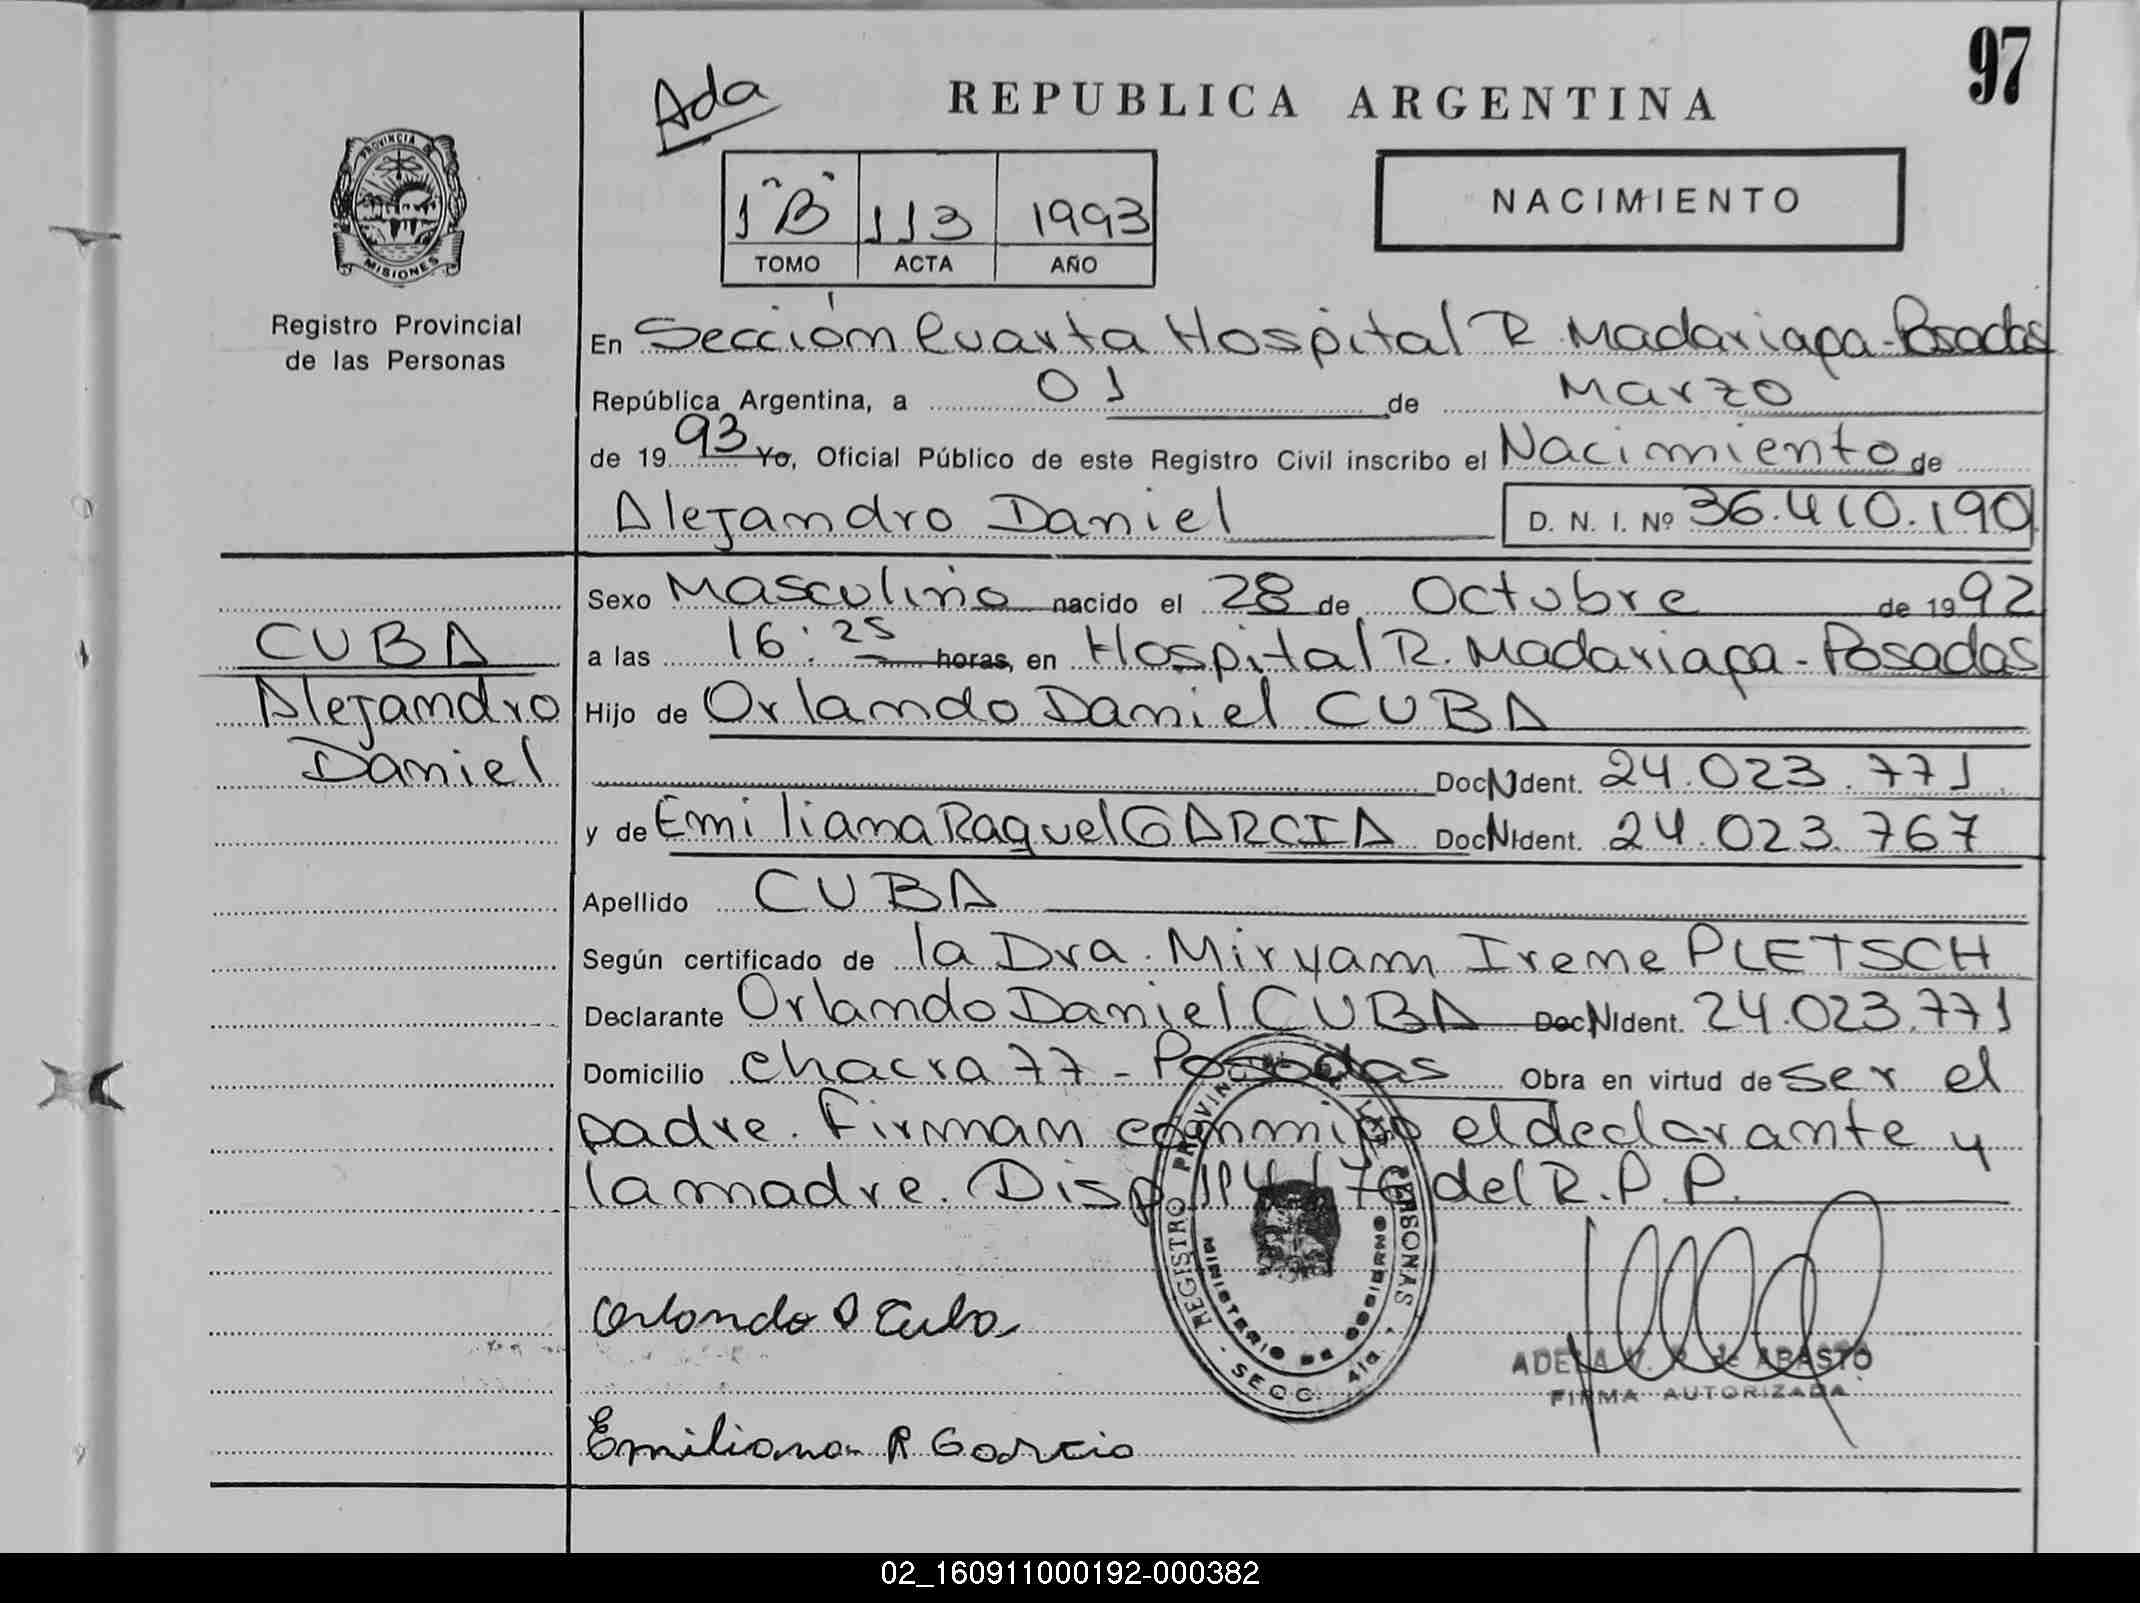 97
Ada
REPUBLICA ARGENTINA
PROVINCIA DE MISIONES
Registro Provincial
de las Personas
1 "B" 113 1993
TOMO ACTA AÑO
NACIMIENTO
En Sección Cuarta Hospital R. Madariaga - Posadas
República Argentina, a 01 de Marzo
de 1993 Yo, Oficial Público de este Registro Civil inscribo el Nacimiento de
Alejandro Daniel D. N. I. Nº 36.410.190
Sexo Masculino nacido el 28 de Octubre de 1992
CUBA
Alejandro
Daniel
a las 16:25 horas, en Hospital R. Madariaga - Posadas
Hijo de Orlando Daniel CUBA
Doc N Ident. 24.023.771
y de Emiliana Raquel GARCIA Doc N Ident. 24.023.767
Apellido CUBA
Según certificado de la Dra. Miryam Irene PLETSCH
Declarante Orlando Daniel CUBA Doc N Ident. 24.023.771
Domicilio chacra 77 - Posadas Obra en virtud de ser el
padre. Firman conmigo el declarante y
la madre. Disp 114/76 del R.P.P.
REGISTRO PROVINCIAL DE LAS PERSONAS
MINISTERIO DE GOBIERNO
SECC. 4ta.
Orlando D Cuba
ADELA V. de ABASTO
FIRMA AUTORIZADA
Emiliana R Garcia
02_160911000192-000382